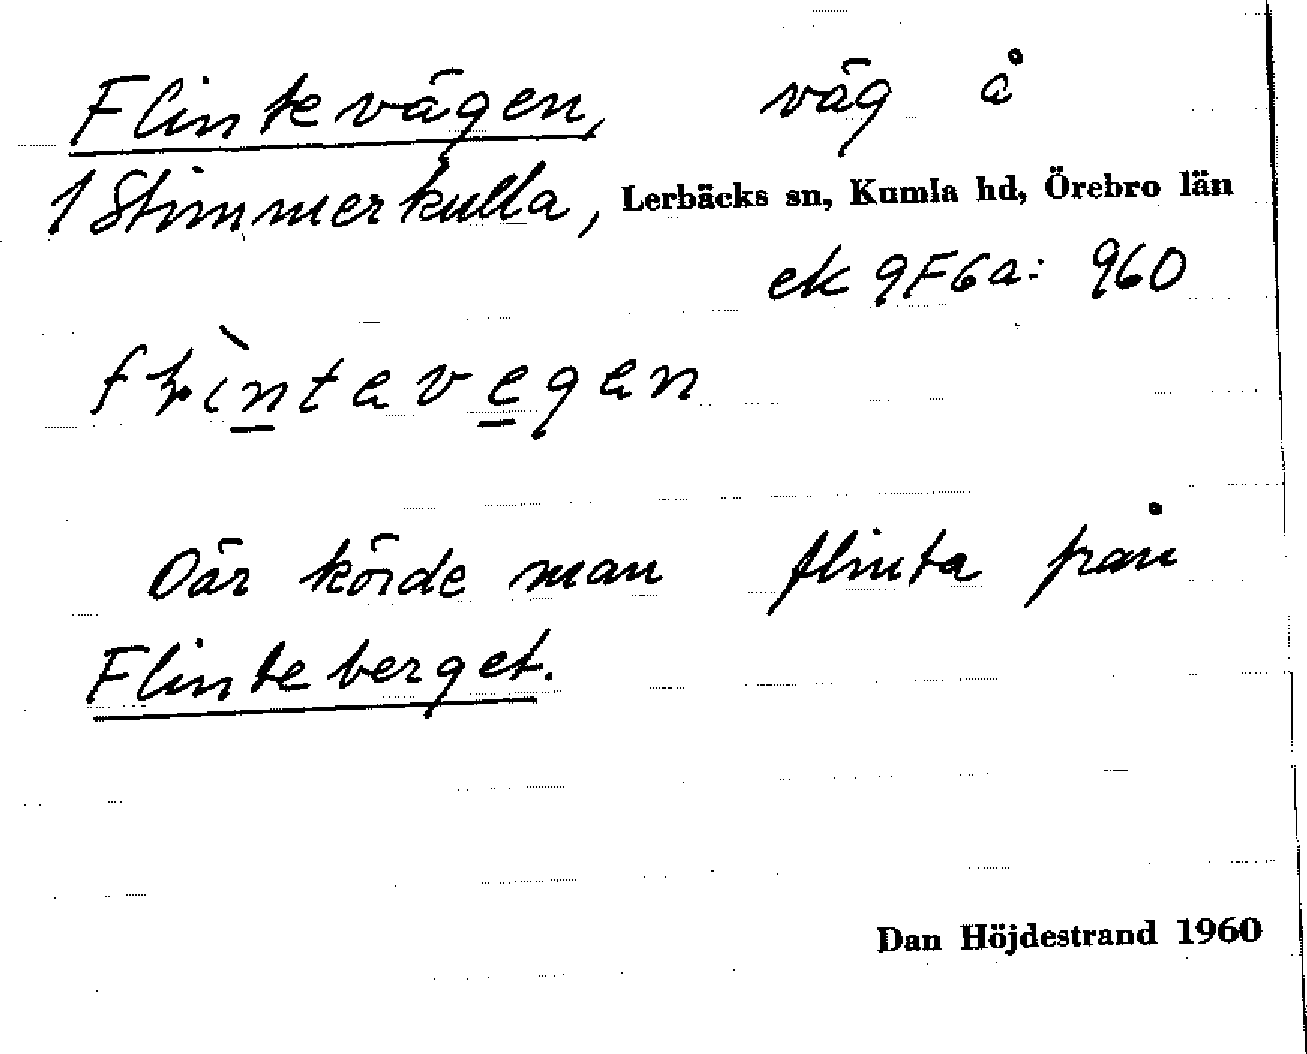 Flintevägen, väg å
1 Stimmerkulla, Lerbäcks sn, Kumla hd, Örebro län
ek 9F6a: 960
Där körde man flinta från
Flinteberget.
Dan Höjdestrand 1960